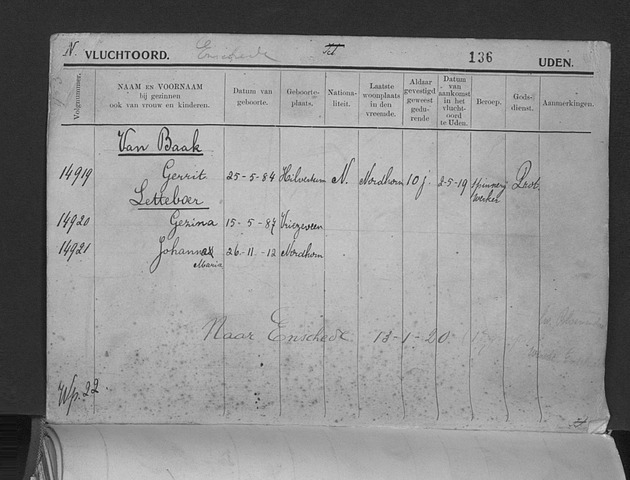 N. VLUCHTOORD. Enschede 136 UDEN.
Volgnummer. NAAM EN VOORNAAM bij gezinnen ook van vrouw en kinderen. Datum van geboorte. Geboorte-plaats. Nationa-liteit. Laatste woonplaats in den vreemde. Aldaar gevestigd geweest gedu-rende Datum van aankomst in het vlucht-oord te Uden. Beroep. Gods-dienst. Aanmerkingen.
Van Baak
14919 Gerrit 25-5-84 Hilversum N. Nordhorn 10 j. 2-5-19 spinnerij werker Prot.
Letteboer
14920 Gezina 15-5-87 Vriezeveen
14921 Johanna Maria 26-11-12 Nordhorn
Naar Enschede 13-1-20
Wp. 22